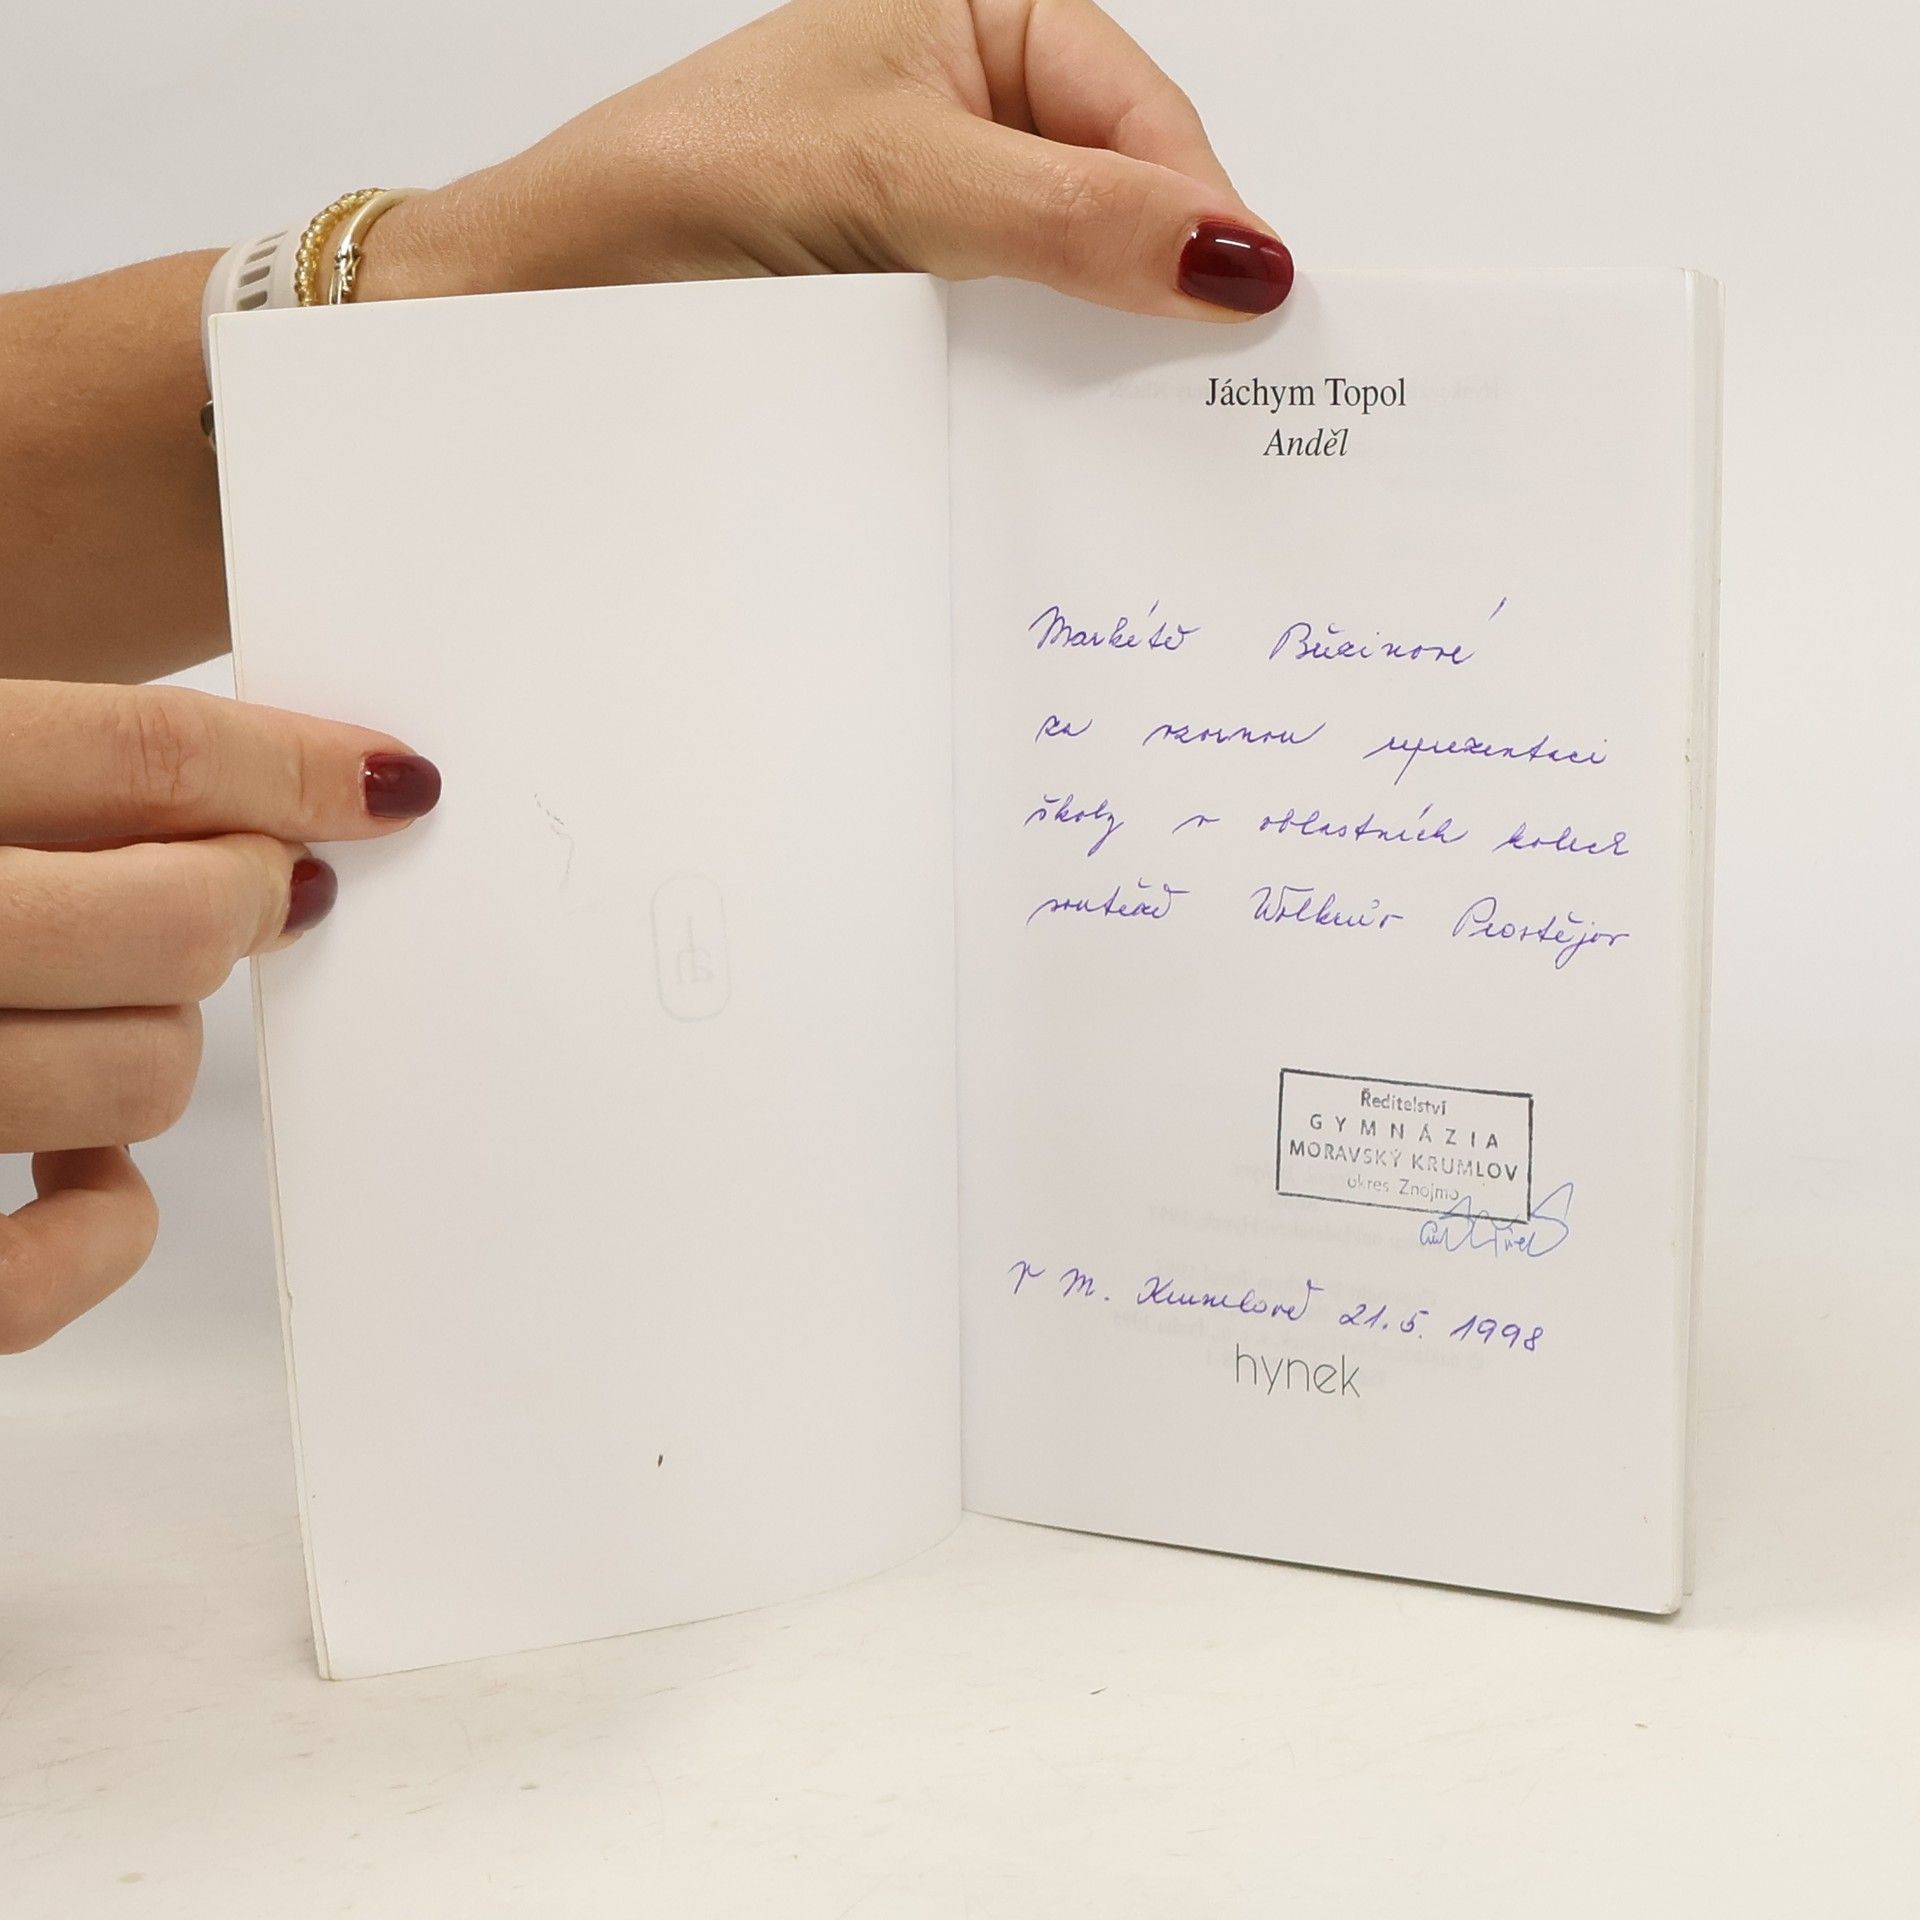 Jáchym Topol
Anděl
Markétě Březinové
za vzornou reprezentaci
školy v oblastních kolech
soutěže Wolkrův Prostějov
Ředitelství
GYMNÁZIA
MORAVSKÝ KRUMLOV
okres Znojmo
V M. Krumlově 21.5.1998
hynek